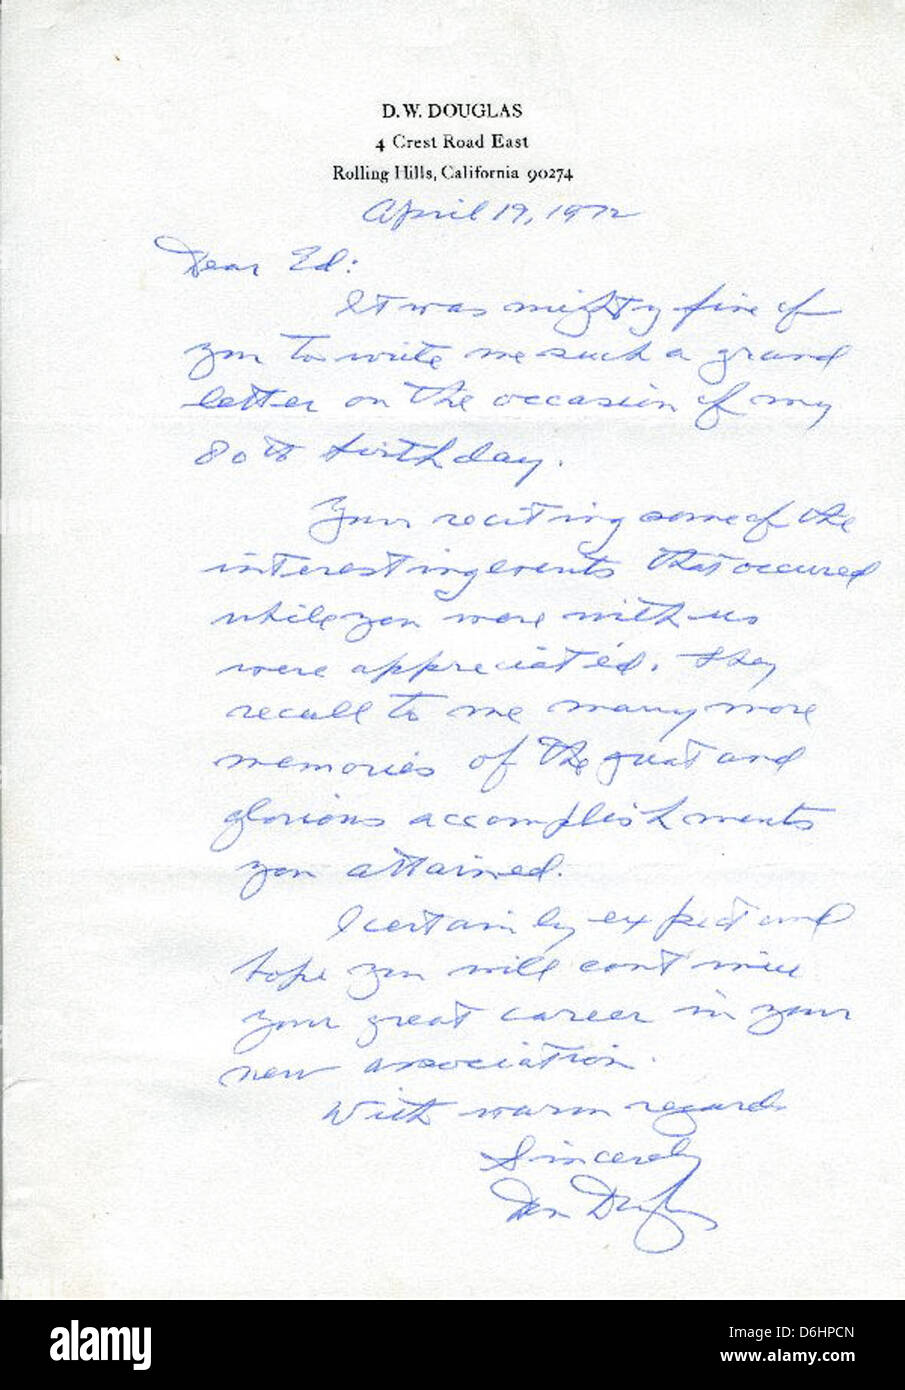 D.W. DOUGLAS
4 Crest Road East
Rolling Hills, California 90274
April 19, 1972
Dear Ed:
It was mighty fine of
you to write me such a grand
letter on the occasion of my
80th birthday.
Your reciting some of the
interesting events that occured
while you were with us
were appreciated. They
recall to me many more
memories of the great and
glorious accomplishments
you attained.
I certainly expect and
hope you will continue
your great career in your
new association.
With warm regards
Sincerely
Don Douglas
alamy
Image ID: D6HPCN
www.alamy.com